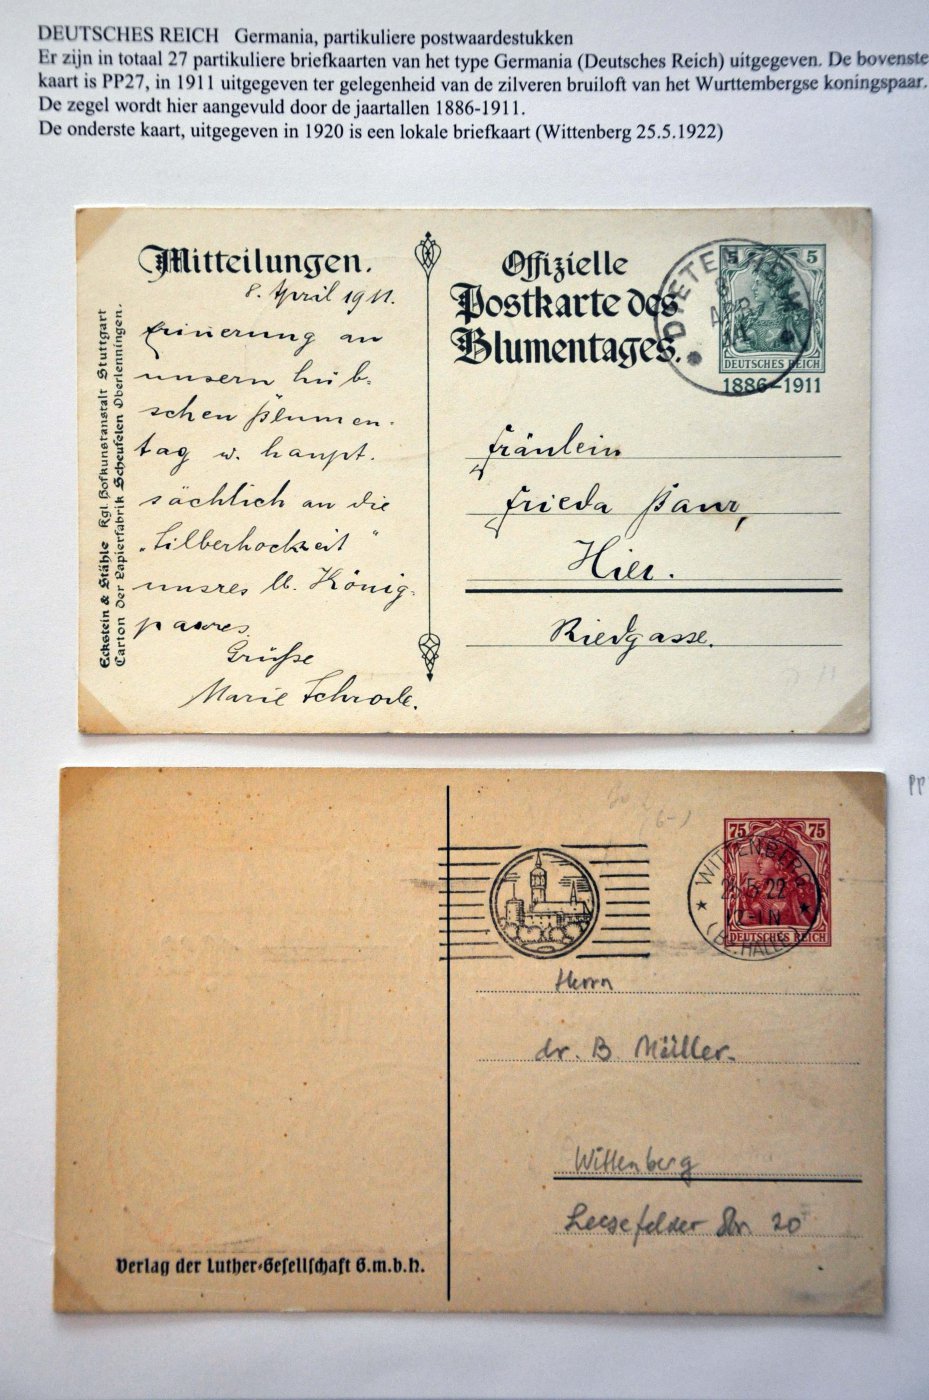 DEUTSCHES REICH Germania, partikuliere postwaardestukken
Er zijn in totaal 27 partikuliere briefkaarten van het type Germania (Deutsches Reich) uitgegeven. De bovenste
kaart is PP27, in 1911 uitgegeven ter gelegenheid van de zilveren bruiloft van het Wurttembergse koningspaar.
De zegel wordt hier aangevuld door de jaartallen 1886-1911.
De onderste kaart, uitgegeven in 1920 is een lokale briefkaart (Wittenberg 25.5.1922)
Mitteilungen.
8. April 1911.
Erinnerung an
unsern hüb-
schen Blumen-
tag u. haupt-
sächlich an die
„Silberhochzeit"
unsres lb. König-
paares.
Grüße
Marie Schrode.
Eckstein & Stähle Kgl. Hofkunstanstalt Stuttgart
Carton der Papierfabrik Scheufelen Oberlenningen.
Offizielle
Postkarte des
Blumentages.
5 5
DEUTSCHES REICH
1886-1911
DIETENHEIM
8
APR
Fräulein
Frieda Baur,
Hier.
Riedgasse.
PP
75 75
DEUTSCHES REICH
WITTENBERG
25.5.22
12-1N
(BZ. HALLE)
Herrn
dr. B Müller.
Wittenberg
20
Verlag der Luther-Gesellschaft G.m.b.H.